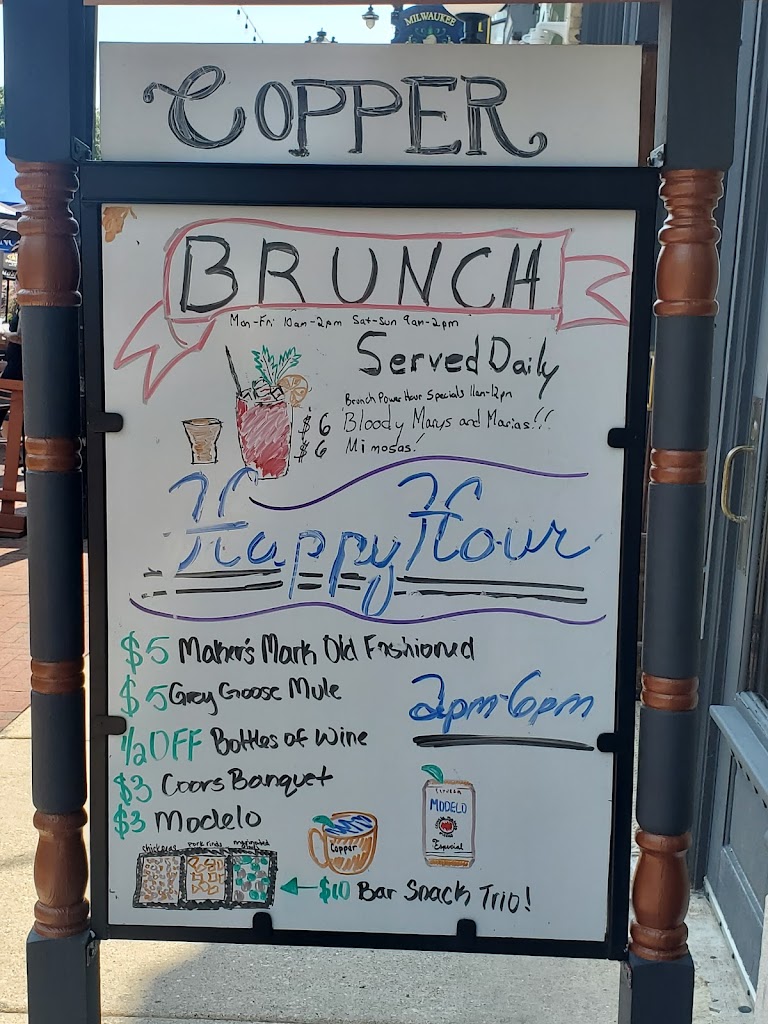 MILWAUKEE
COPPER
BRUNCH
Mon-Fri 10am-2pm Sat-Sun 9am-2pm
Served Daily
Brunch Power Hour Specials 11am-12pm
$6 Bloody Marys and Marias!!!
$6 Mimosas!
Happy Hour
$5 Maker's Mark Old Fashioned
$5 Grey Goose Mule
2pm-6pm
1/2 OFF Bottles of Wine
$3 Coors Banquet
$3 Modelo
Cerveza
MODELO
Especial
Copper
chickpeas pork rinds marinated
$10 Bar Snack Trio!